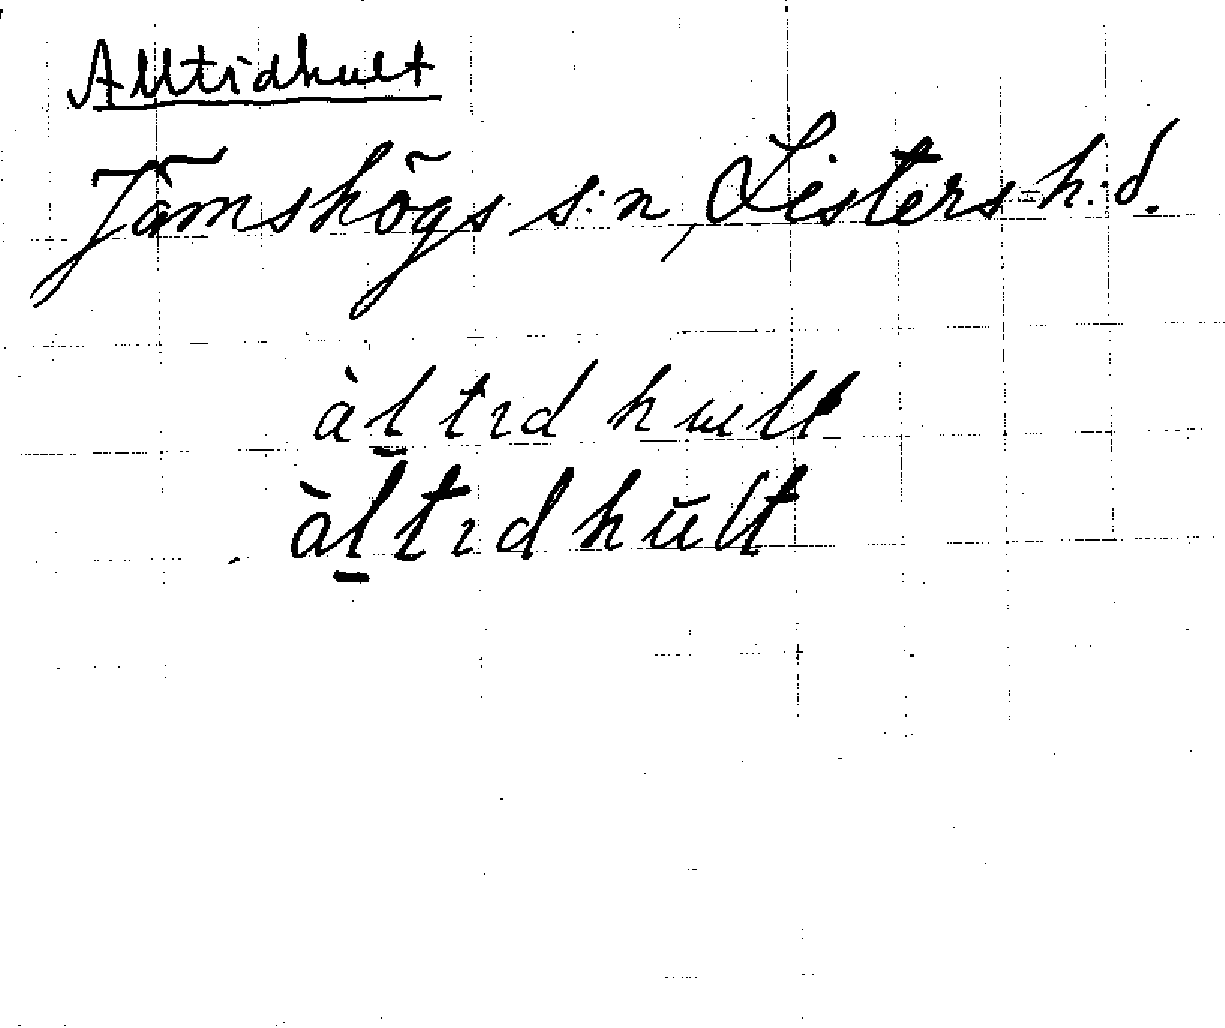 Alltidhult
Jämshögs s:n, Listers h:d.
àl̲tıdhult
àl̲tıdhŭlt